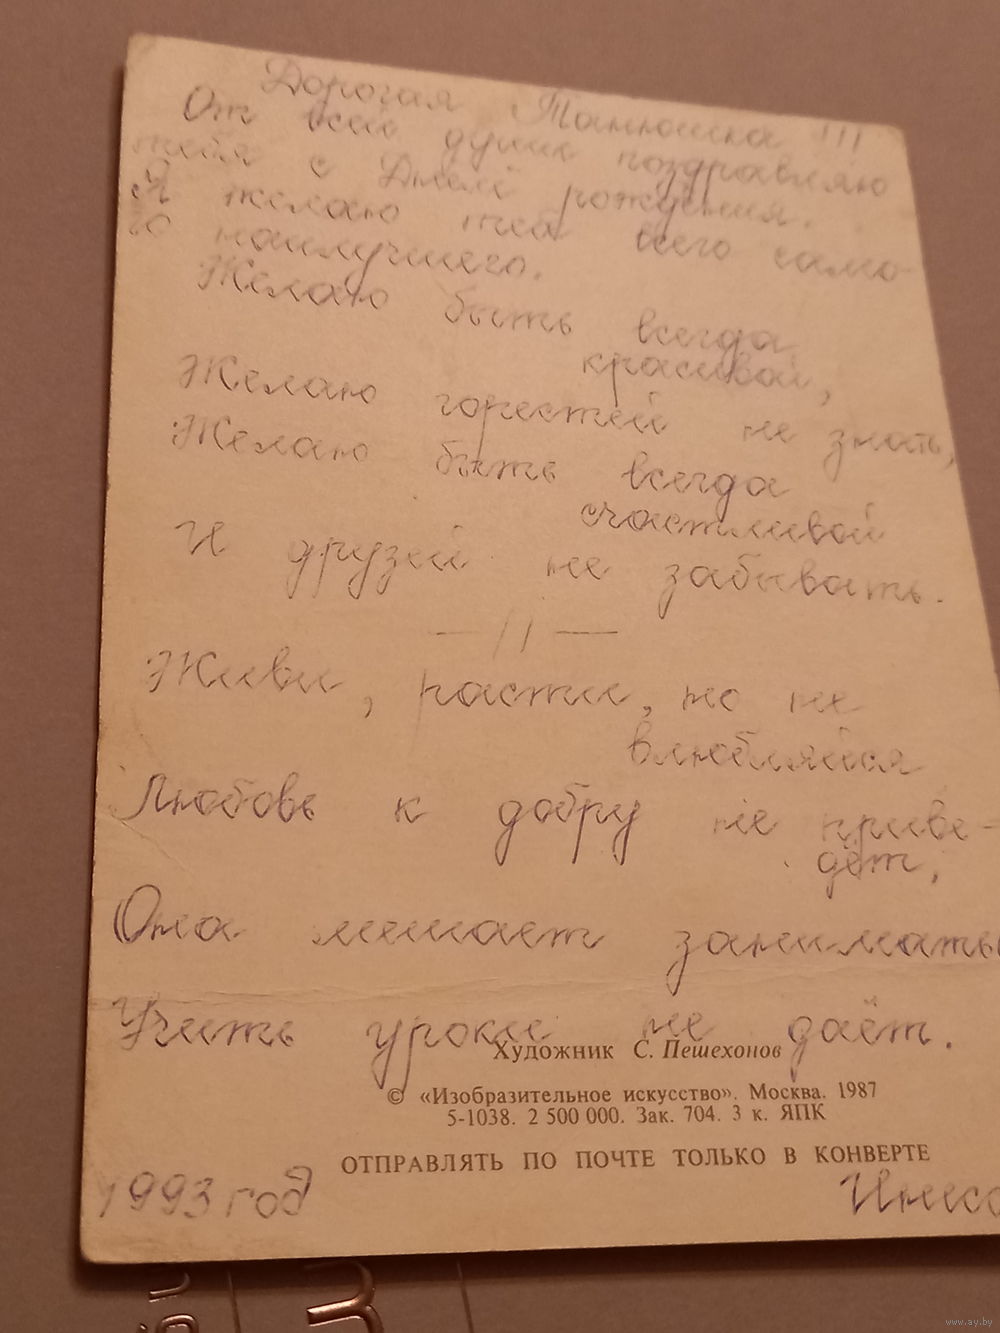 Дорогая Танюшка !!!
От всей души поздравляю
тебя с Днём рождения.
Я желаю тебе всего само-
го наилучшего.
Желаю быть всегда
красивой,
Желаю горестей не знать,
Желаю быть всегда
счастливой
И друзей не забывать.
— // —
Живи, расти, но не
влюбляйся
Любовь к добру не приве-
дёт,
Она мешает заниматься
Учить уроки не даёт.
Художник С. Пешехонов
© «Изобразительное искусство». Москва. 1987
5-1038. 2 500 000. Зак. 704. 3 к. ЯПК
ОТПРАВЛЯТЬ ПО ПОЧТЕ ТОЛЬКО В КОНВЕРТЕ
1993 год
www.ay.by